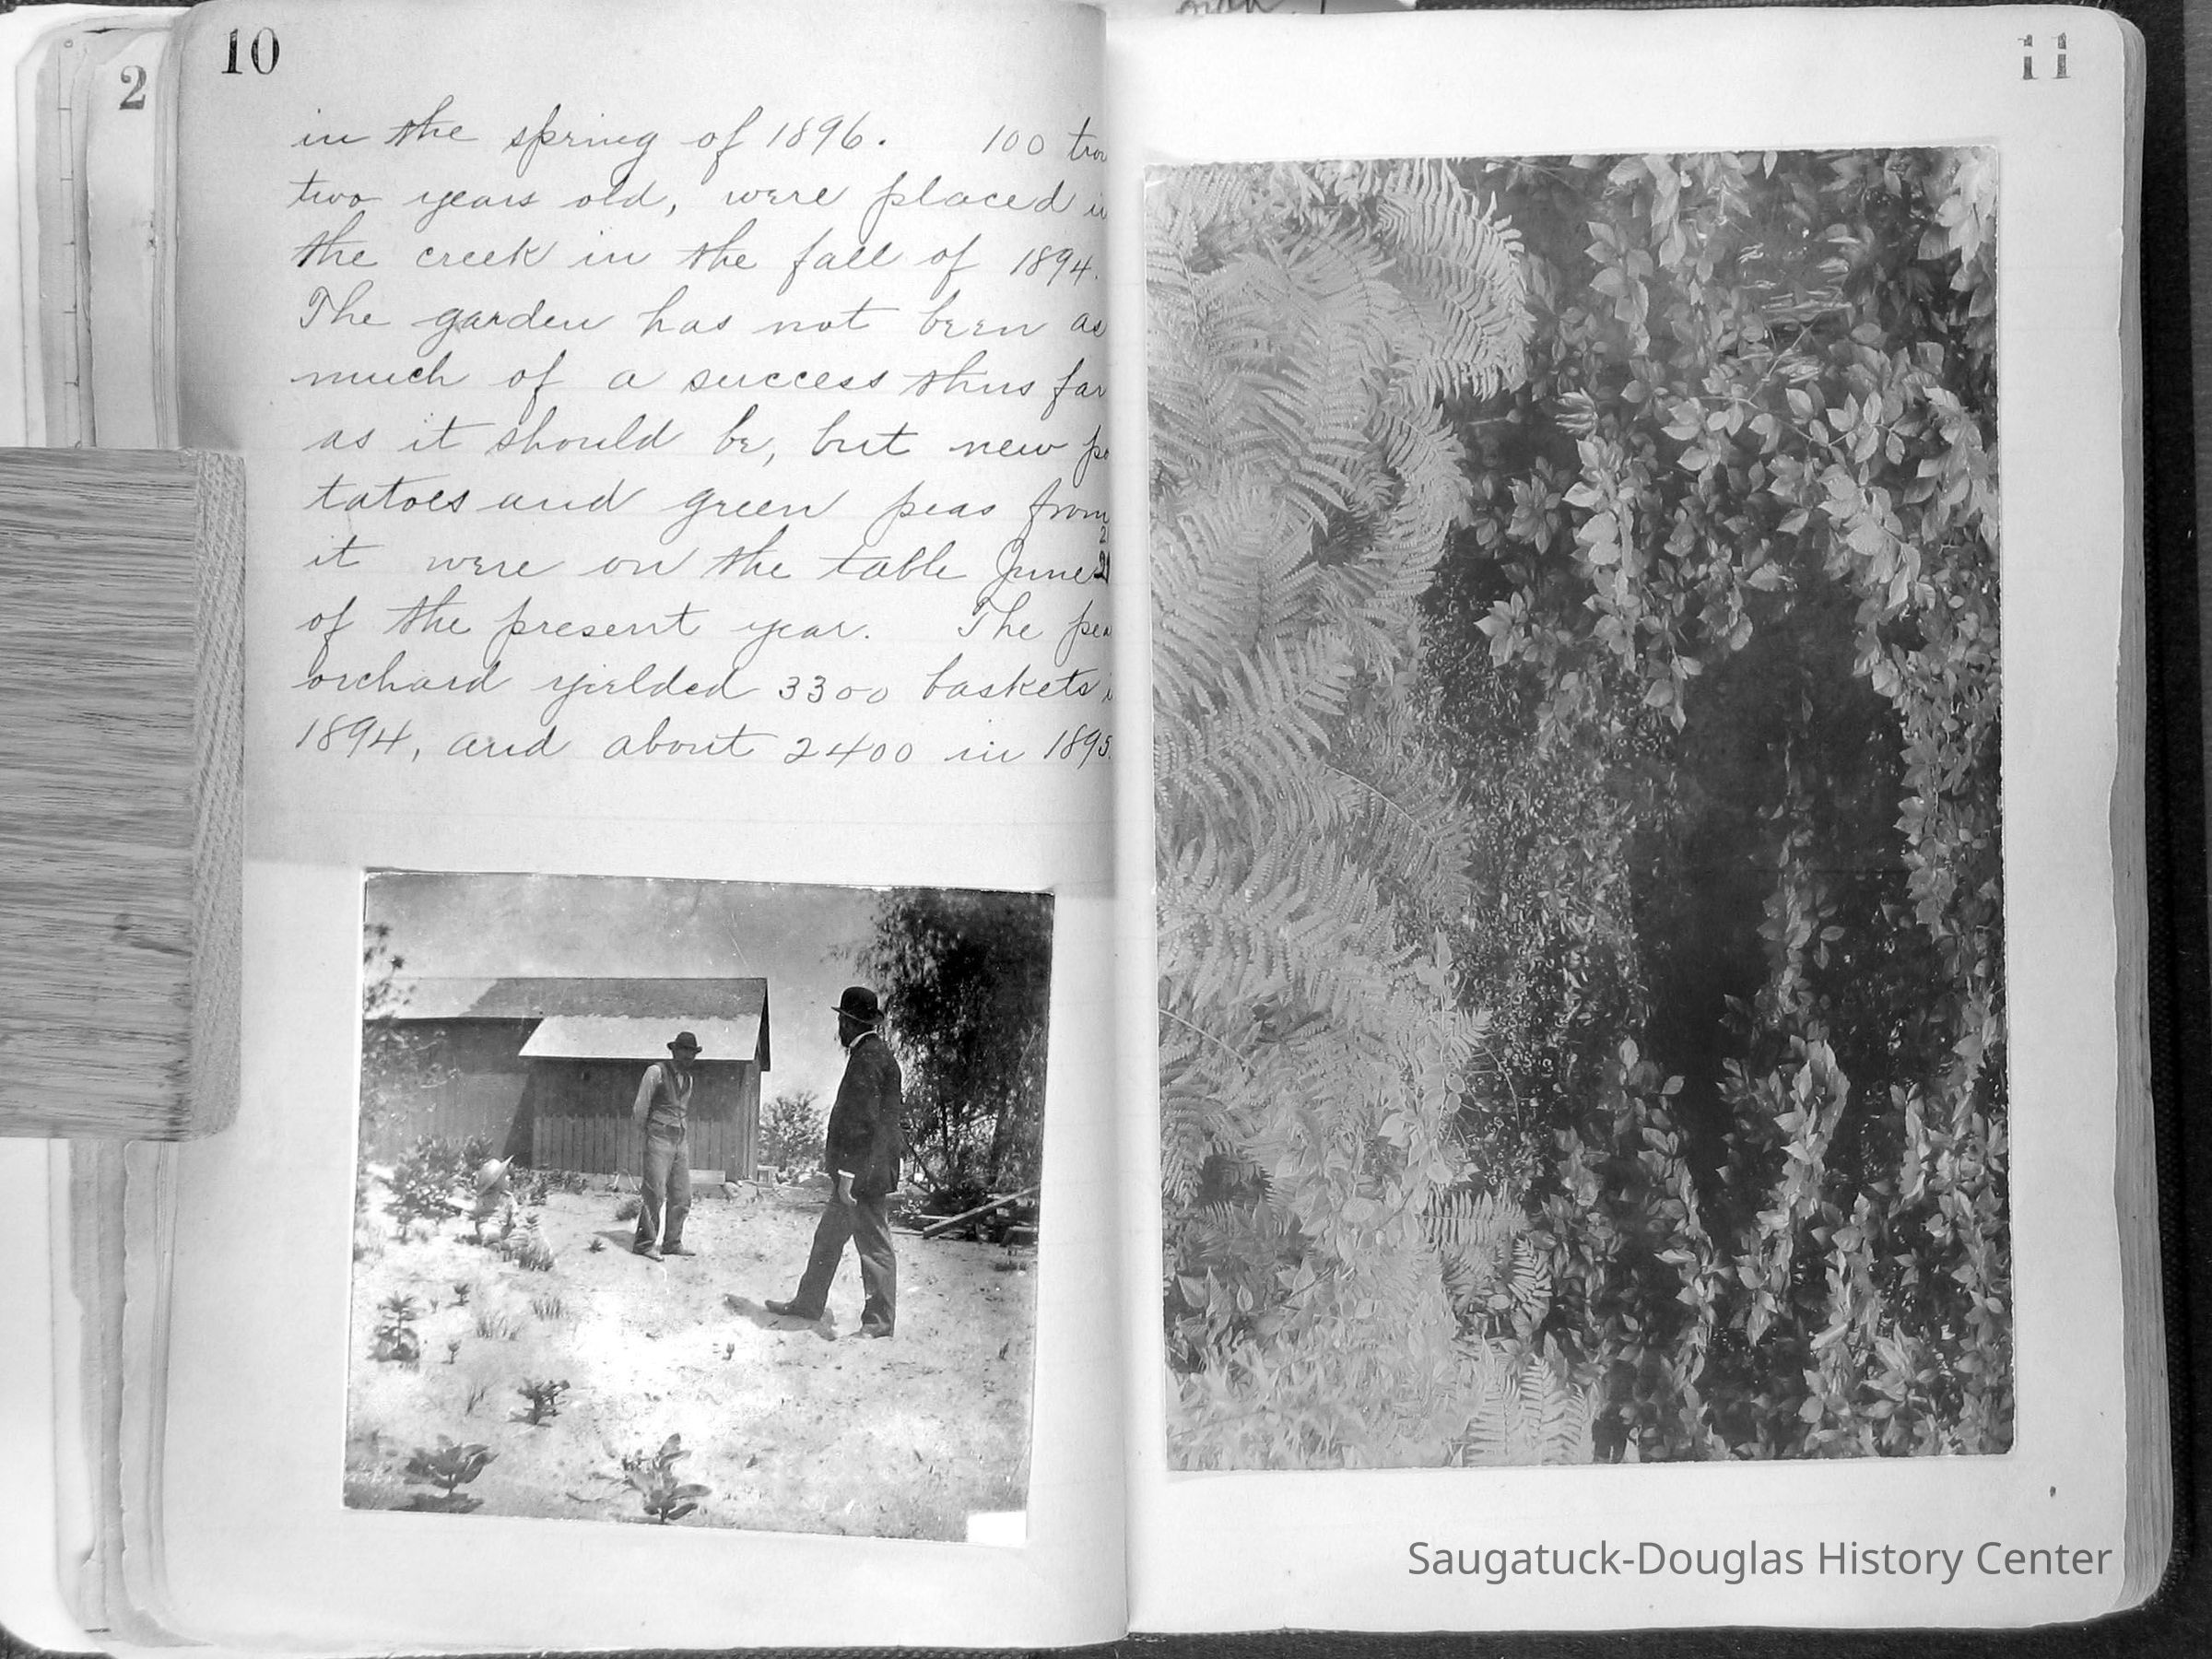 10
2
11
in the spring of 1896. 100
two years old, were placed
the creek in the fall of 1894.
The garden has not been as
much of a success thus far
as it should be, but new po
tatoes and green peas from
it were on the table June
of the present year. The
orchard yielded 3300 baskets
1894, and about 2400 in 1895.
Saugatuck-Douglas History Center